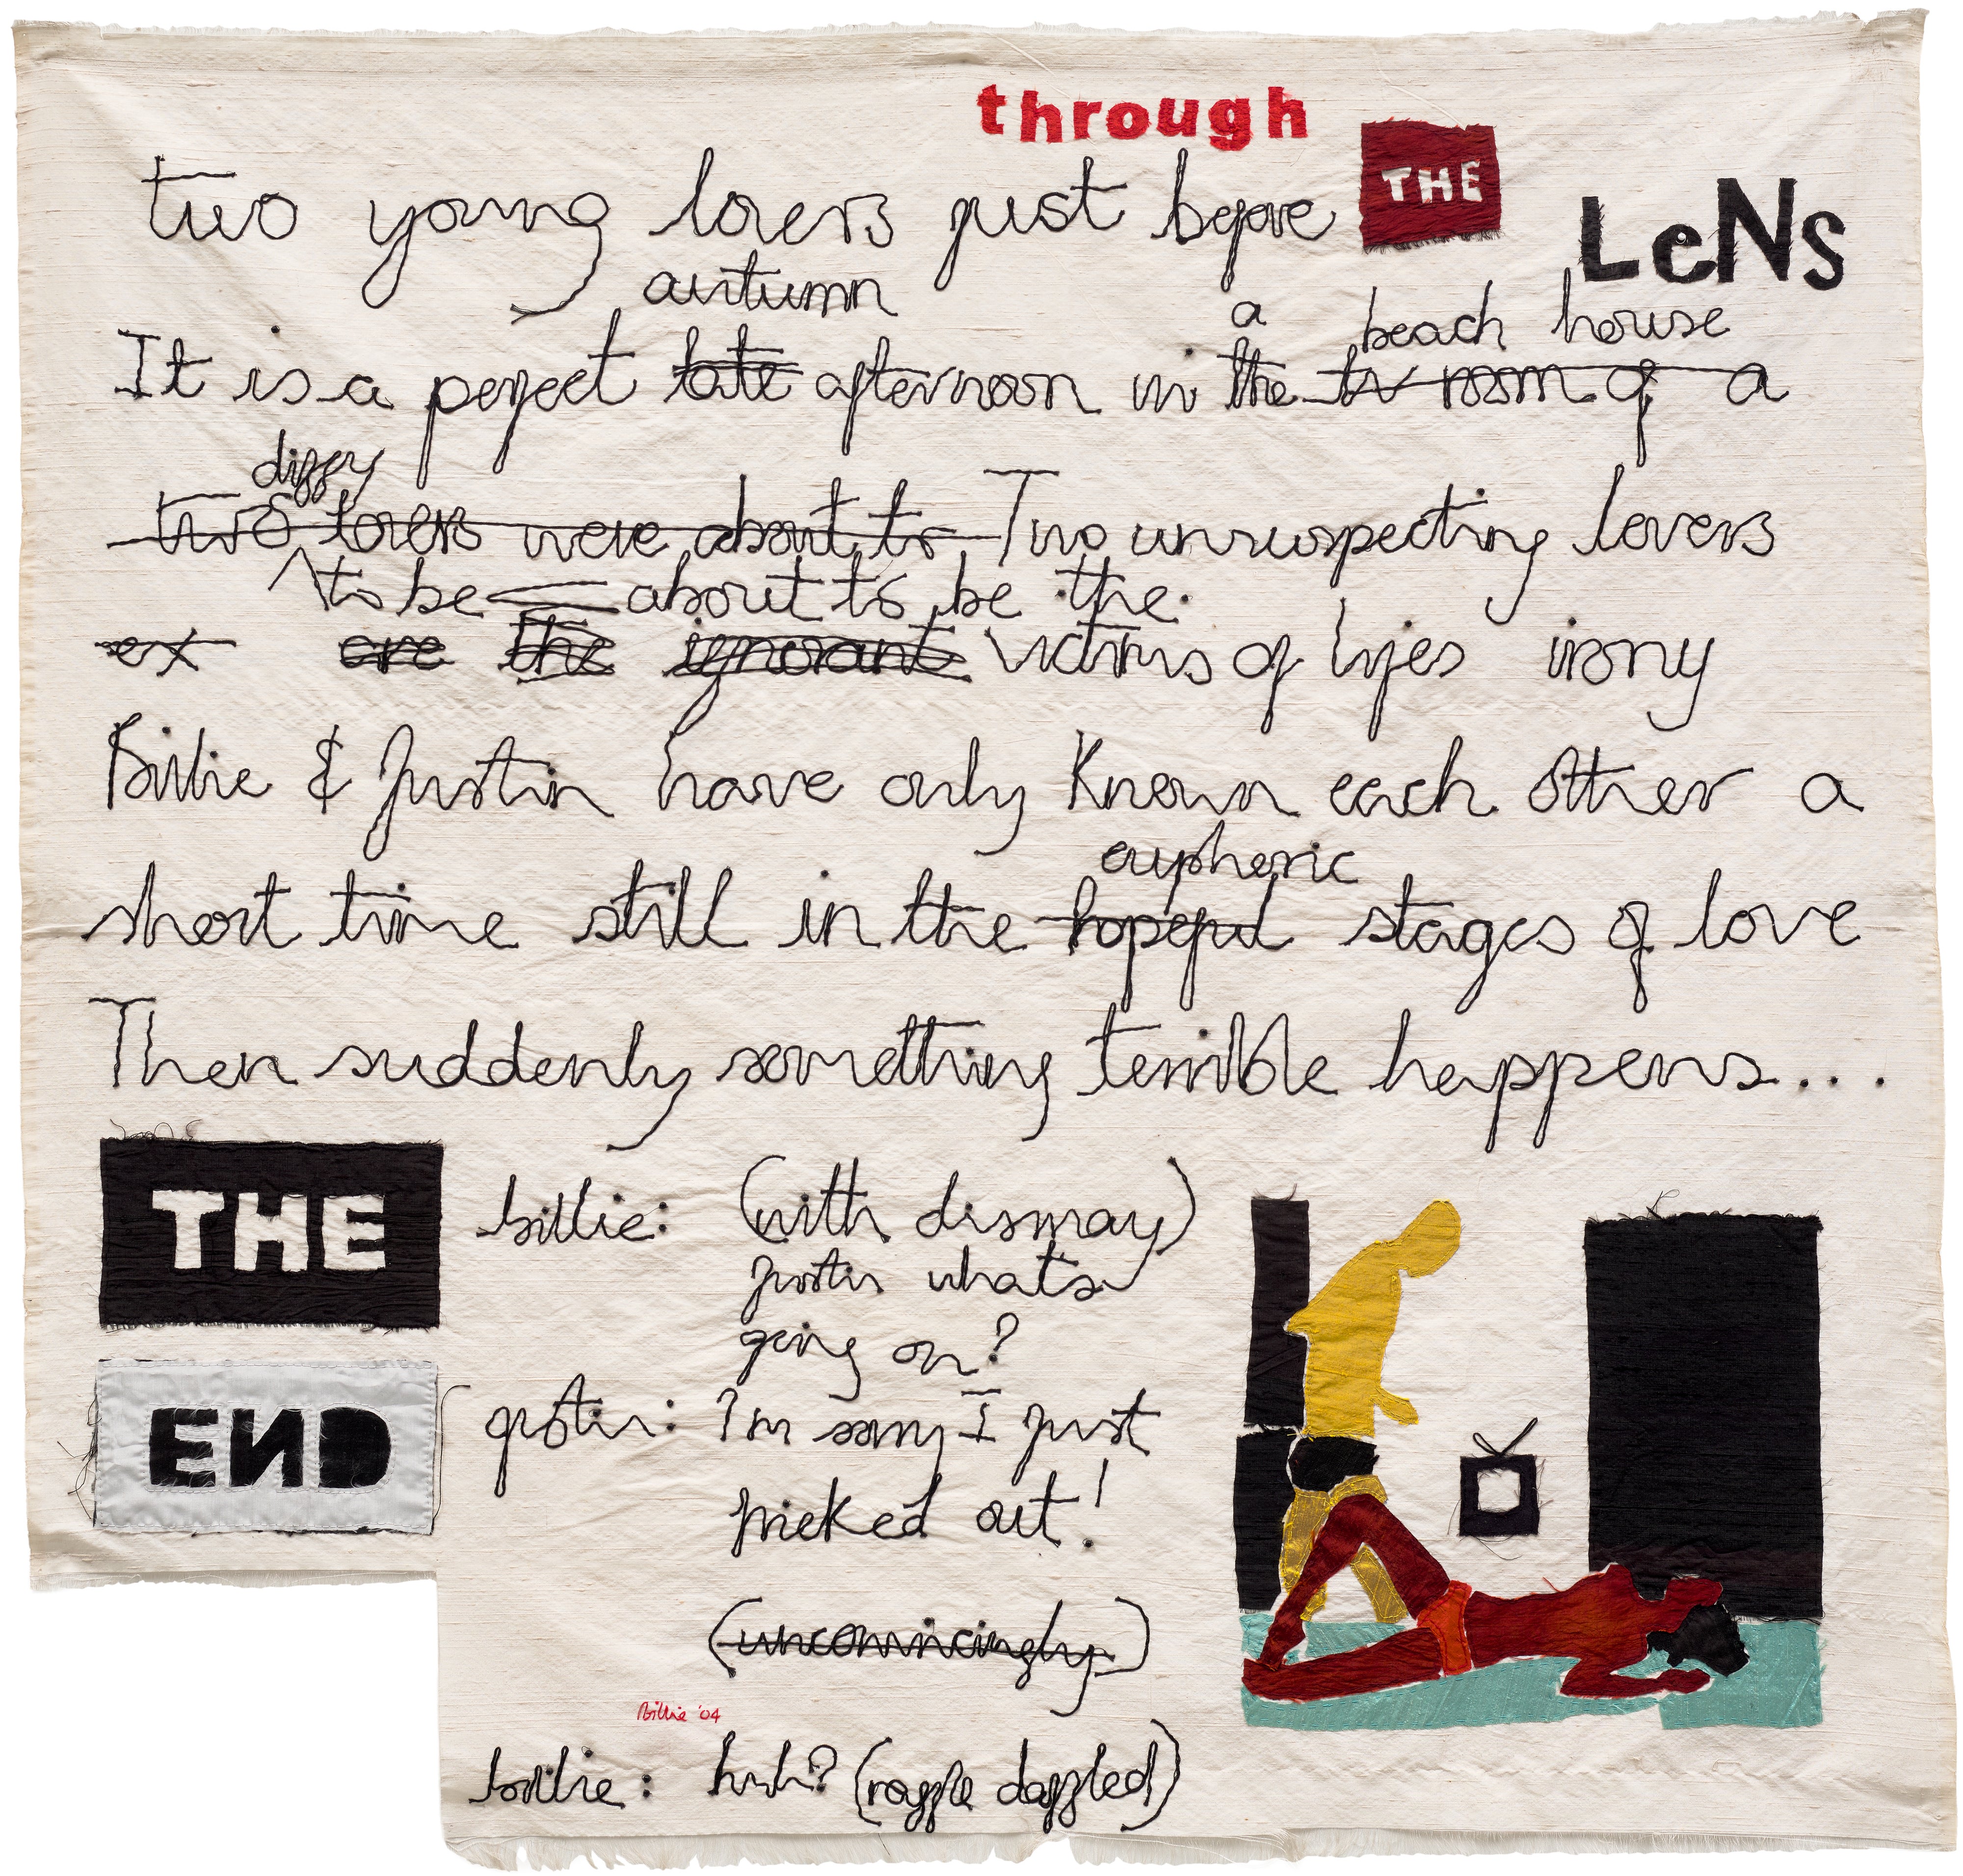 through
THE
LeNs
two young lovers just before
autumn
a beach house
It is a perfect late afternoon in the tv room of a
dizzy
two lovers were about to Two unsuspecting lovers
to be about to be the
ex are the ignorant victims of lifes irony
Billie & Justin have only known each other a
euphoric
short time still in the hopeful stages of love
Then suddenly something terrible happens...
THE
END
billie: (with dismay)
justin whats
going on?
justin: I'm sorry I just
freaked out!
(unconvincingly)
Billie '04
billie: huh? (razzle dazzled)